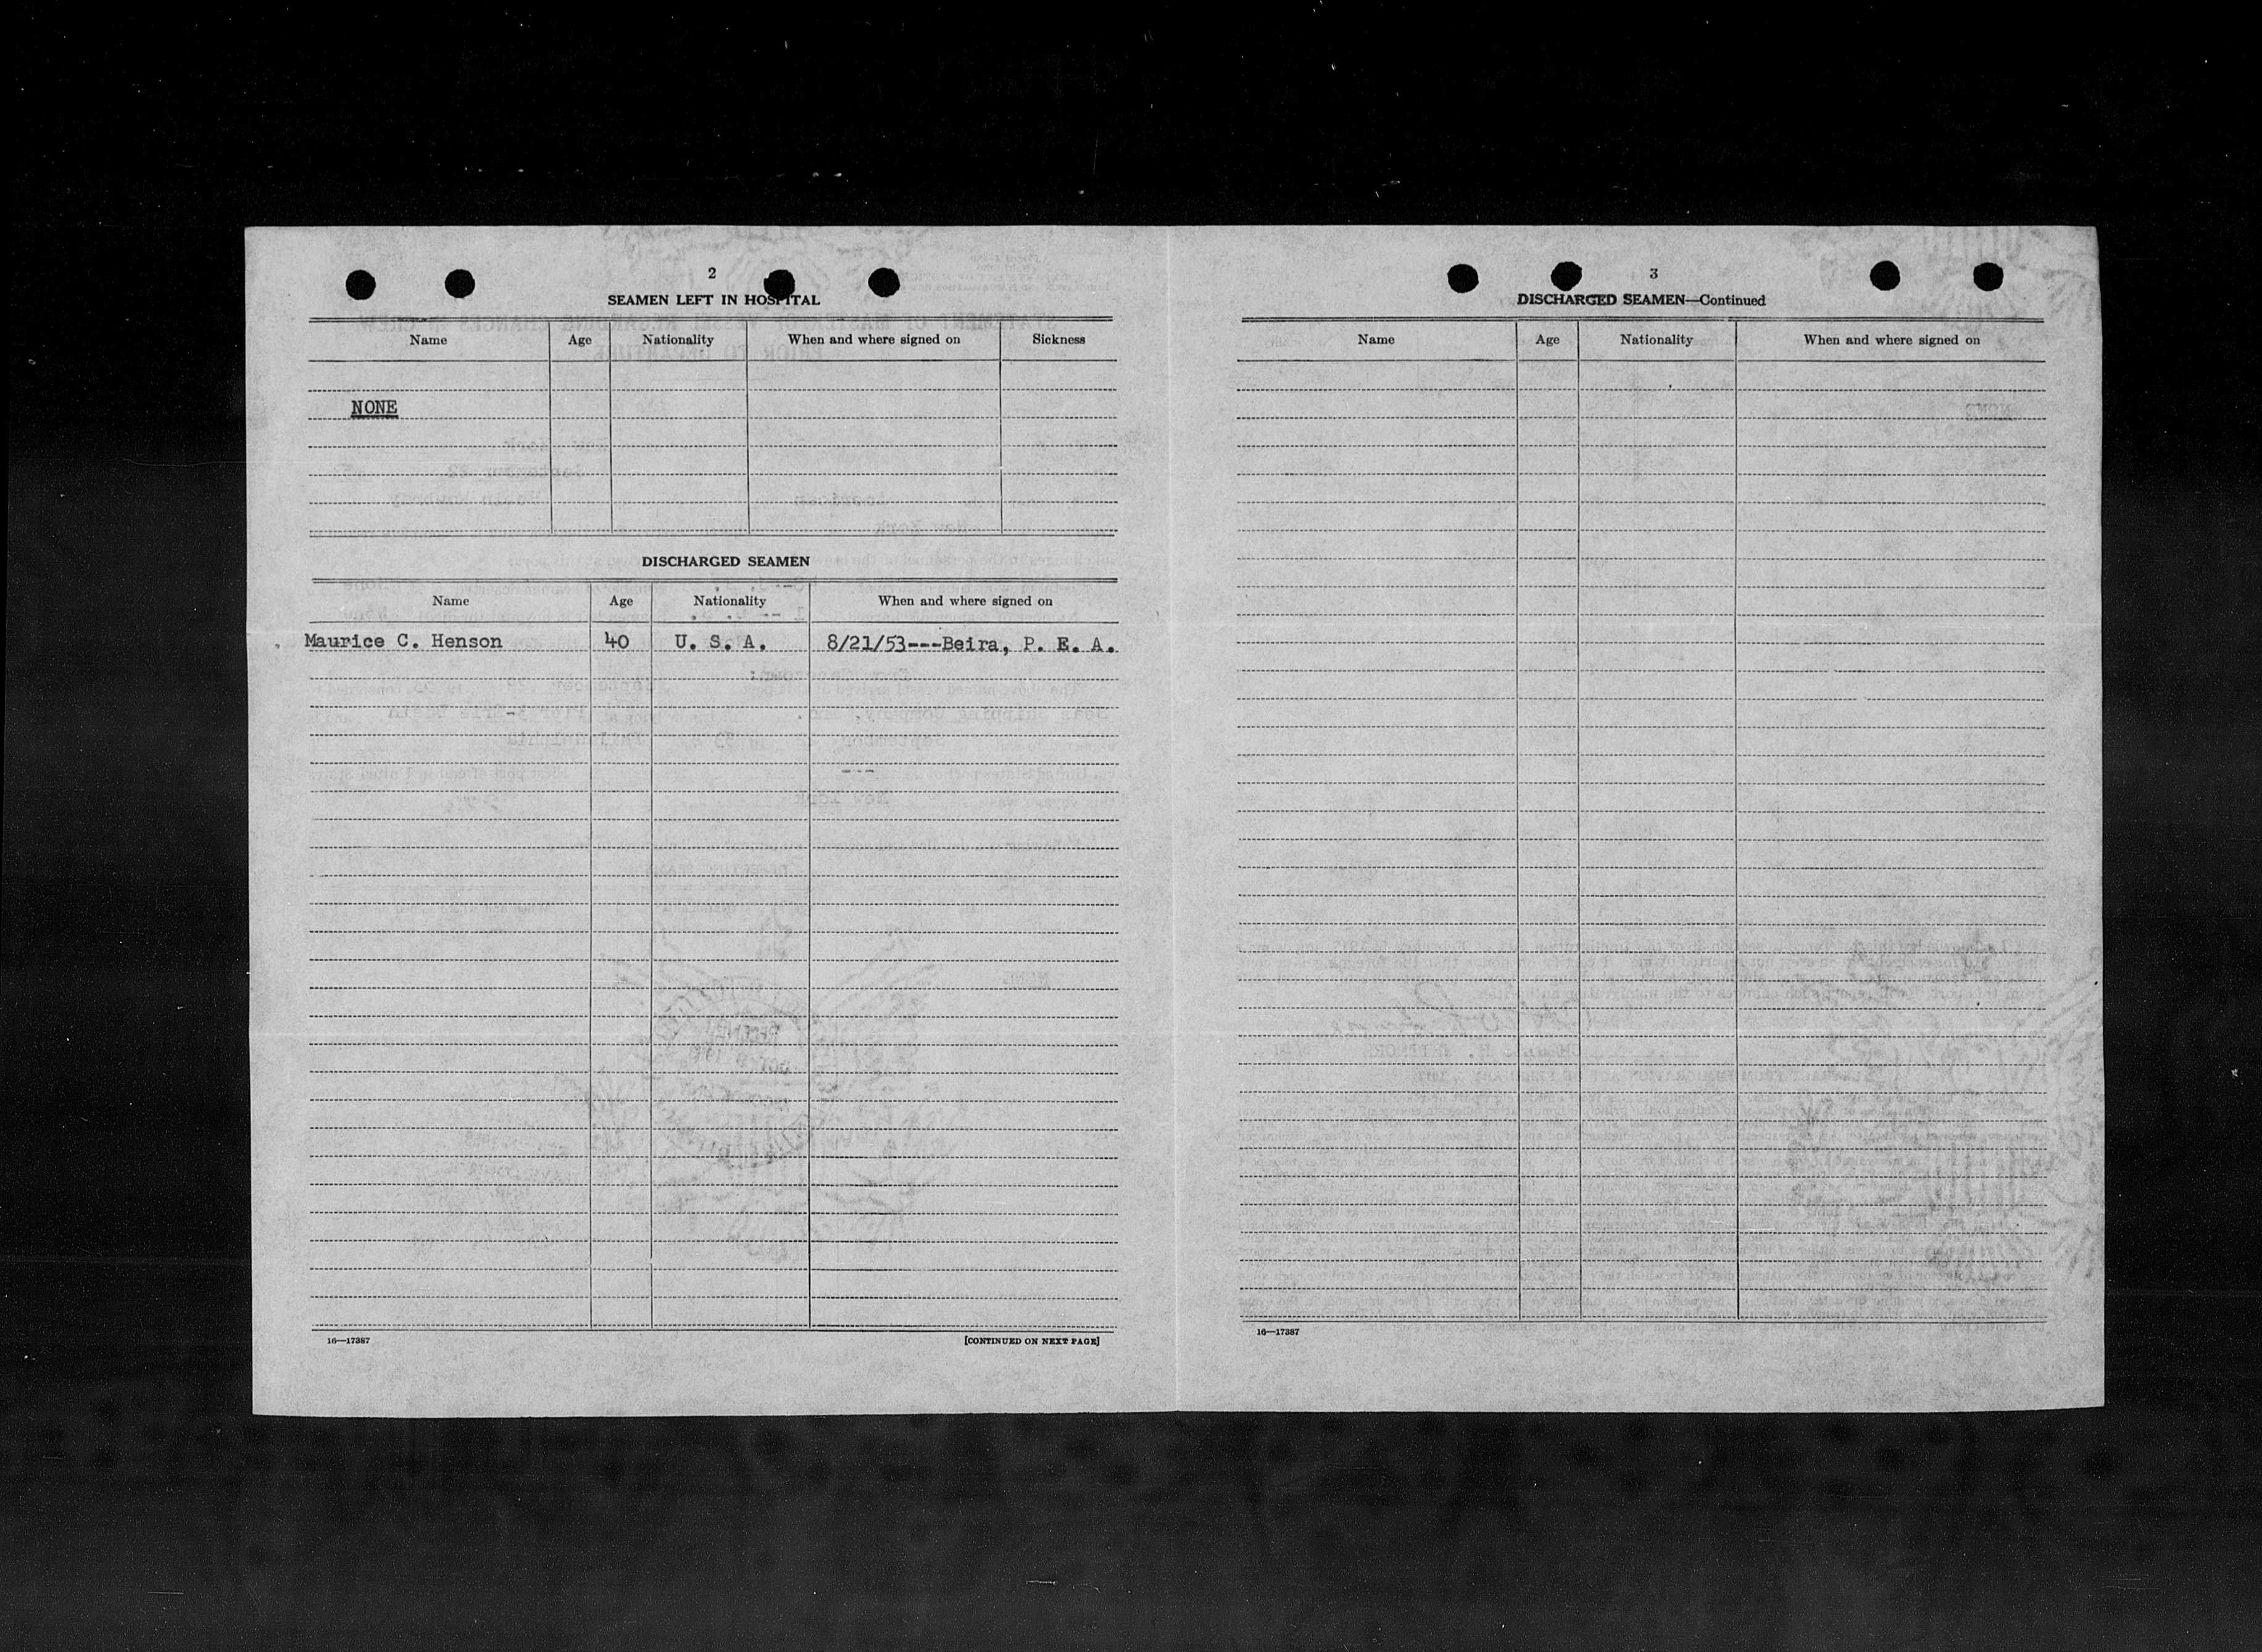 2
SEAMEN LEFT IN HOSPITAL
Name Age Nationality When and where signed on Sickness
NONE
DISCHARGED SEAMEN
Name Age Nationality When and where signed on
Maurice C. Henson 40 U. S. A. 8/21/53---Beira, P. E. A.
16—17387 [CONTINUED ON NEXT PAGE]
3
DISCHARGED SEAMEN—Continued
Name Age Nationality When and where signed on
16—17387